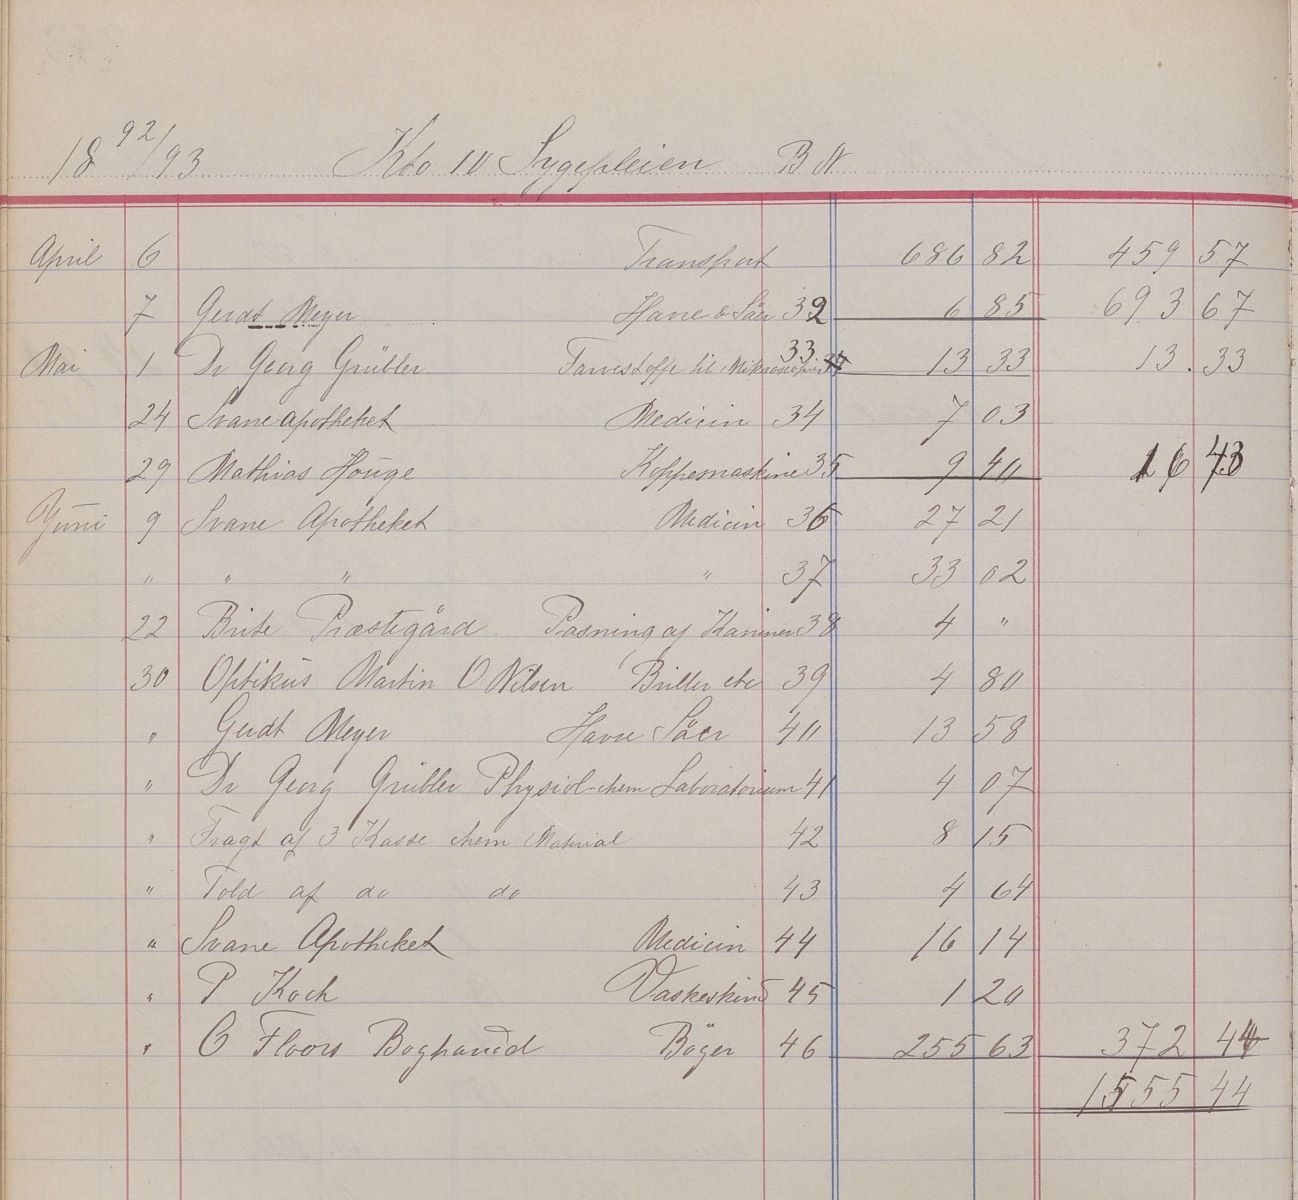 18 92/93 Kto 10 Sygepleien B N
April 6 Transport 686 82 459 57
7 Gerdt Meyer Havre & Säer 32 6 85 693 67
Mai 1 Dr Georg Grübler Farvestoffe til Mikroscopi 33 34 13 33 13. 33
24 Svane apotheket Medicin 34 7 03
29 Mathias Houge Koppesmaskine 35 9 40 16 43
Juni 9 Svane Apotheket Medicin 36 27 21
" " " " 37 33 02
22 Brite Præstegård Pasning af Kaniner 38 4 "
30 Optikus Martin O Nilsen Briller etc 39 4 80
" Gerdt Meyer Havre Säer 40 13 58
" Dr Georg Grübler Physiol-chem Laboratorium 41 4 07
" Fragt af 3 Kasse chem Material 42 8 15
" Told af do do 43 4 64
" Svane Apotheket Medicin 44 16 14
" P Koch Vaskeskind 45 1 20
" O Floors Boghandel Böger 46 255 63 372 44
1555 44